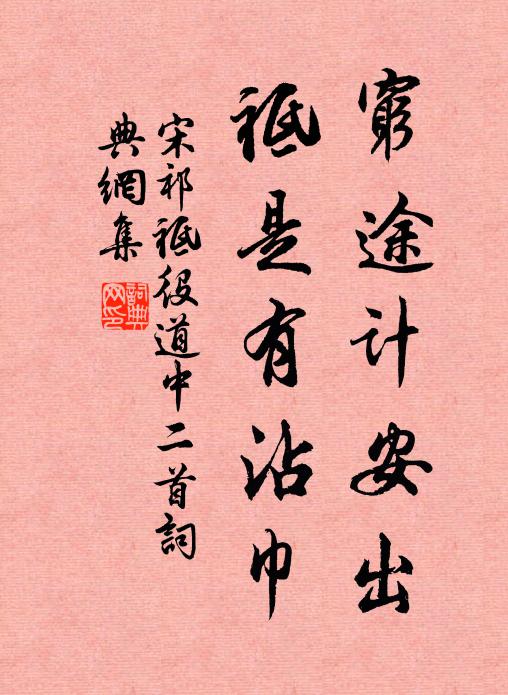 窮途計安出
祗是有沾巾
宋祁祗役道中二首詞
典網集
詞典网印